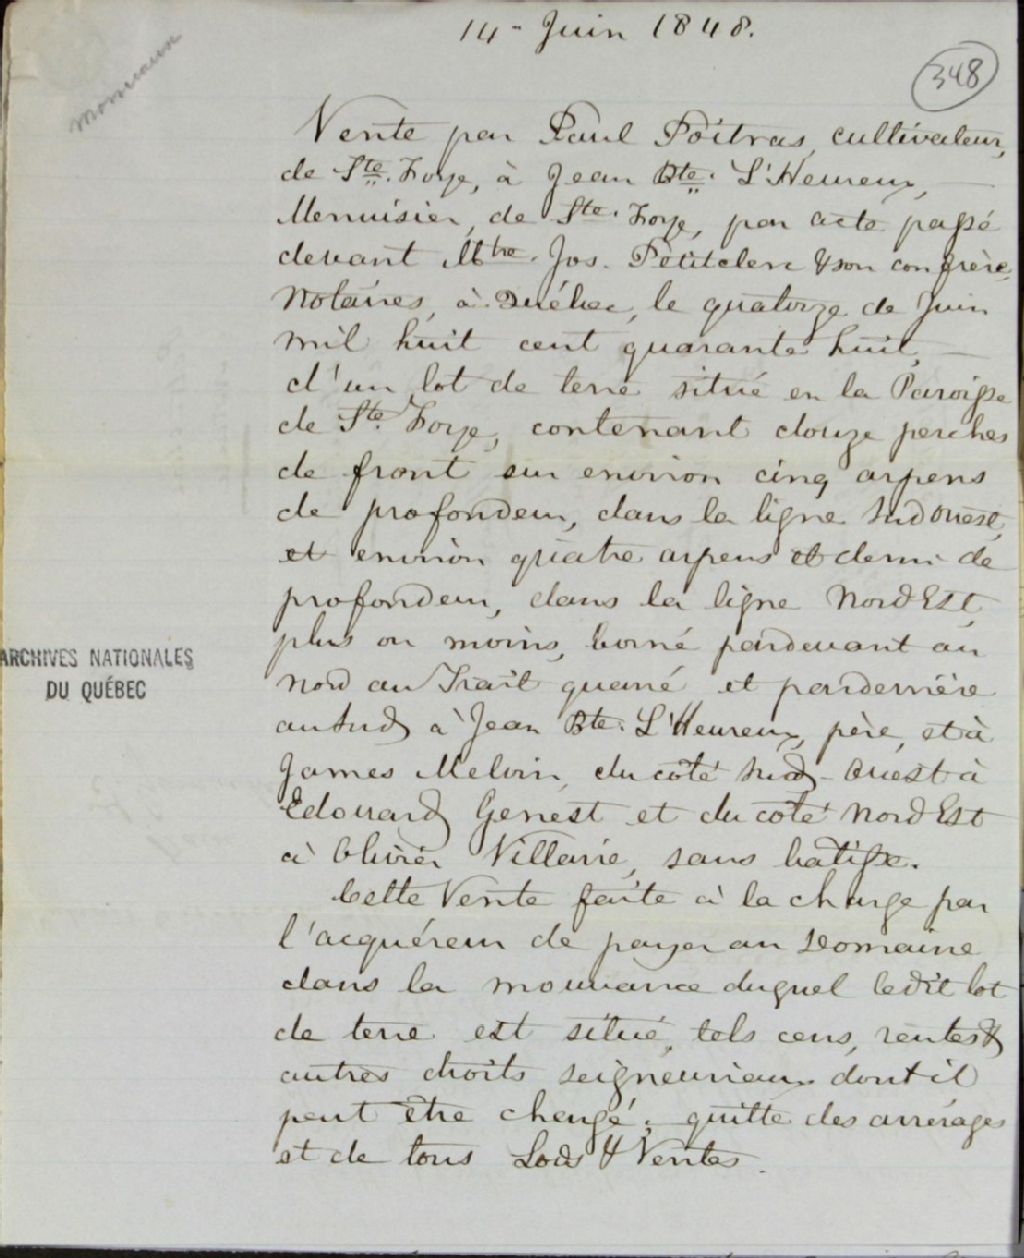 14 - Juin 1848.
348
Monceaux
Vente par Paul Poitras, cultivateur,
de Ste. Foye, à Jean Bte. L'Heureux,
Menuisier, de Ste. Foye, par acte passé
devant Mtre. Jos. Petitclerc & son confrère,
Notaires, à Québec, le quatorze de Juin
mil huit cent quarante huit,
d'un lot de terre situé en la Paroisse
de Ste. Foye, contenant douze perches
de front sur environ cinq arpens
de profondeur, dans la ligne Sud Ouest,
et environ quatre arpens et demi de
profondeur, dans la ligne Nord Est,
plus ou moins, borné pardevant au
Nord au Trait quarré et parderrière
au Sud à Jean Bte. L'Heureux, père, et à
James Melvin, du côté Sud-Ouest à
Edouard Genest et du côté Nord Est
à Olivier Villarie, sans bâtisse.
Cette Vente faite à la charge par
l'acquéreur de payer au Domaine
dans la mouvance duquel ledit lot
de terre est situé, tels cens, rentes &
autres droits seigneuriaux dont il
peut être chargé; quitte des arrérages
et de tous Lods & Ventes.
ARCHIVES NATIONALES
DU QUÉBEC